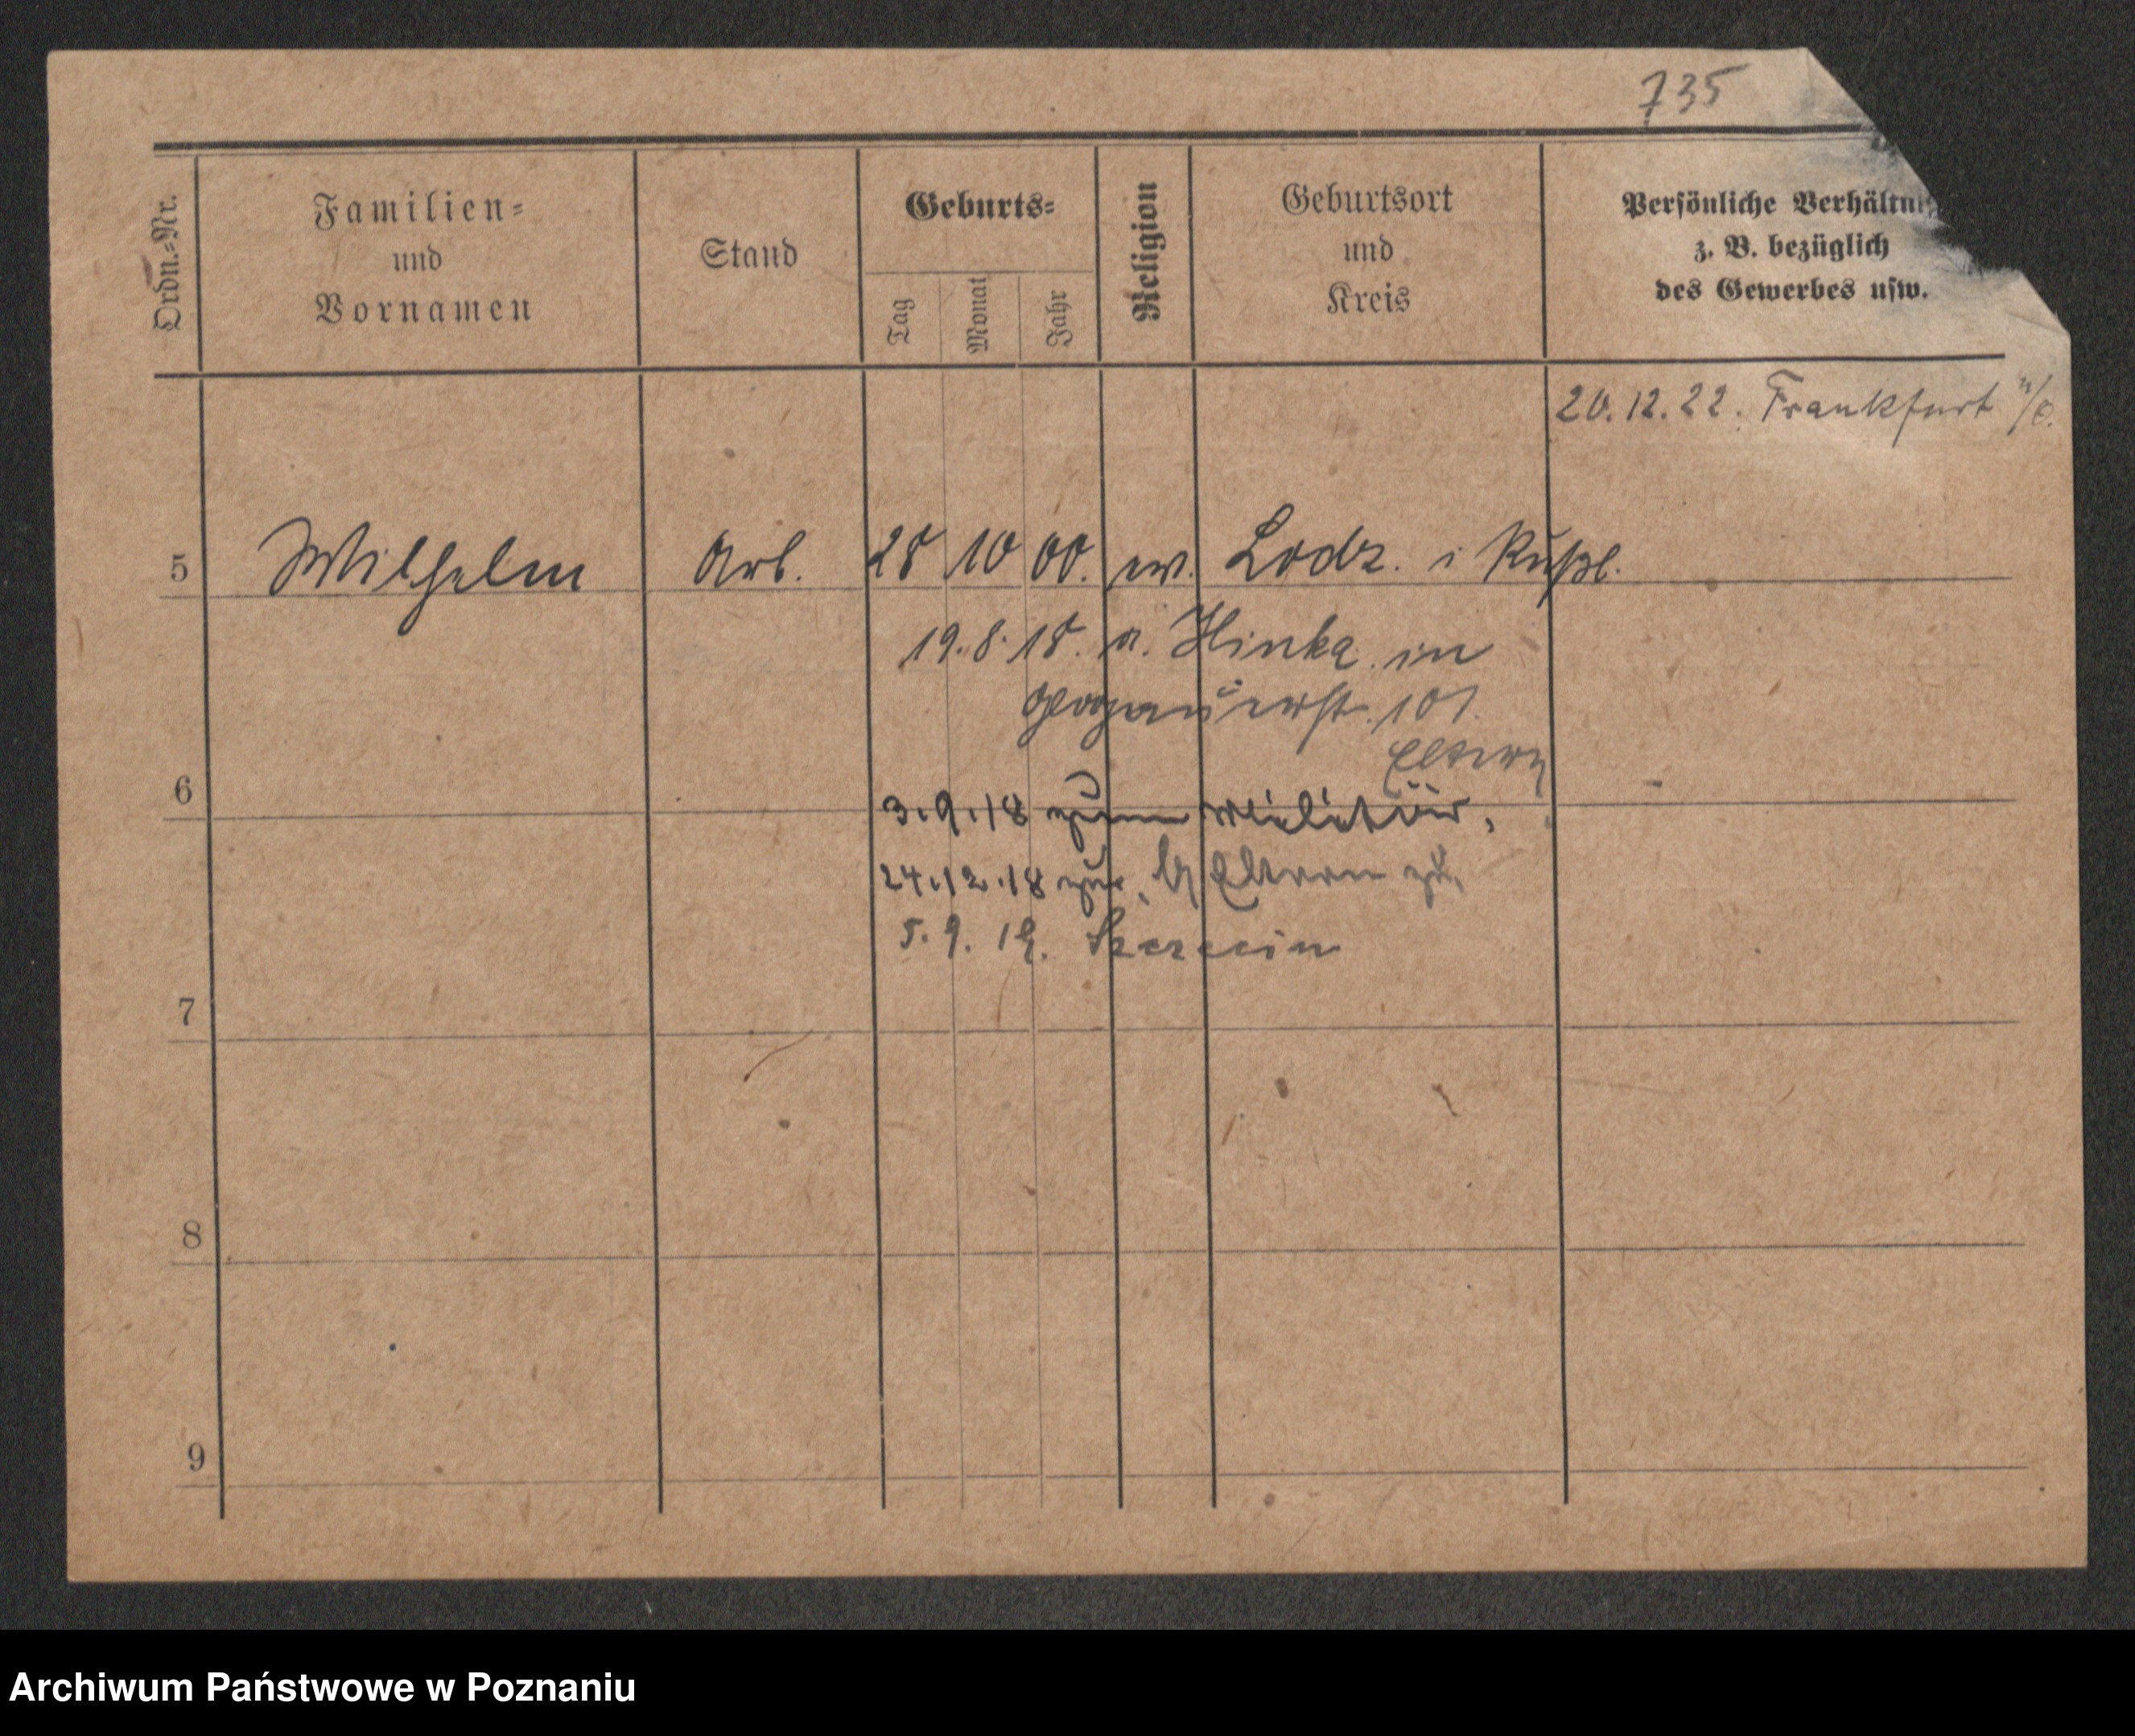 735
Ordn.-Nr.
Familien-
und
Vornamen
Stand
Geburts-
Tag
Monat
Jahr
Religion
Geburtsort
und
Kreis
Persönliche Verhältnis
z. B. bezüglich
des Gewerbes usw.
20.12.22. Frankfurt
5 Wilhelm Arb. 28 10 00. ev. Lodz. i Rußl.
19.8.18. n. Hinka in
Glogauerstr. 101.
Eltern
6
3.9.18 zum Militär,
24.12.18 zur. Eltern zu.
5.9.19. Szczecin
7
8
9
Archiwum Państwowe w Poznaniu